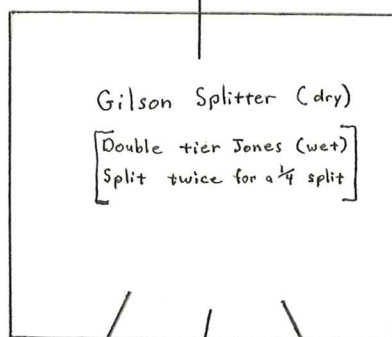 Gilson Splitter (dry)
[Double tier Jones (wet)
Split twice for a 1/4 split]